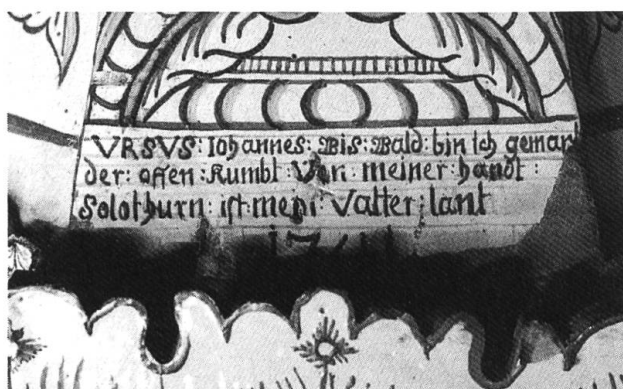 VRSVS: Johannes: Bis: Bald: bin ich gemant
der: offen: Kumbt: Von meiner: handt:
Solothurn: ist: meni: Vatter: lant